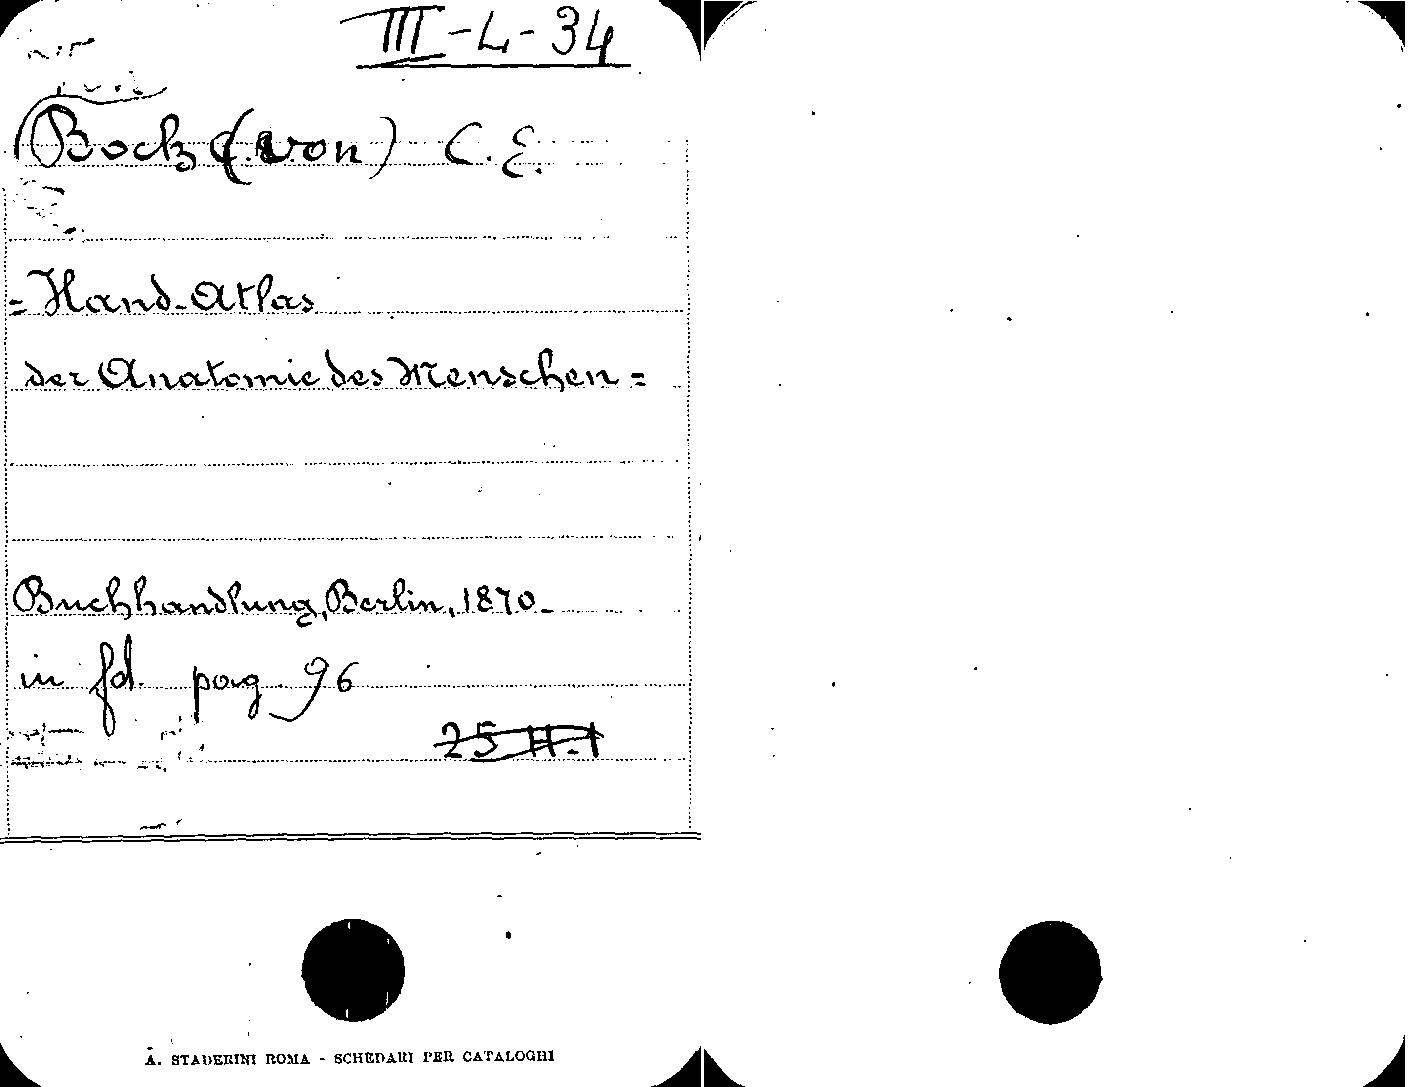 III-L-34
Bock (von) C. E.
=Hand-Atlas
der Anatomie des Menschen=
Buchhandlung, Berlin, 1870.
in fol. pag. 96
25 II-1
A. STADERINI ROMA - SCHEDARI PER CATALOGHI